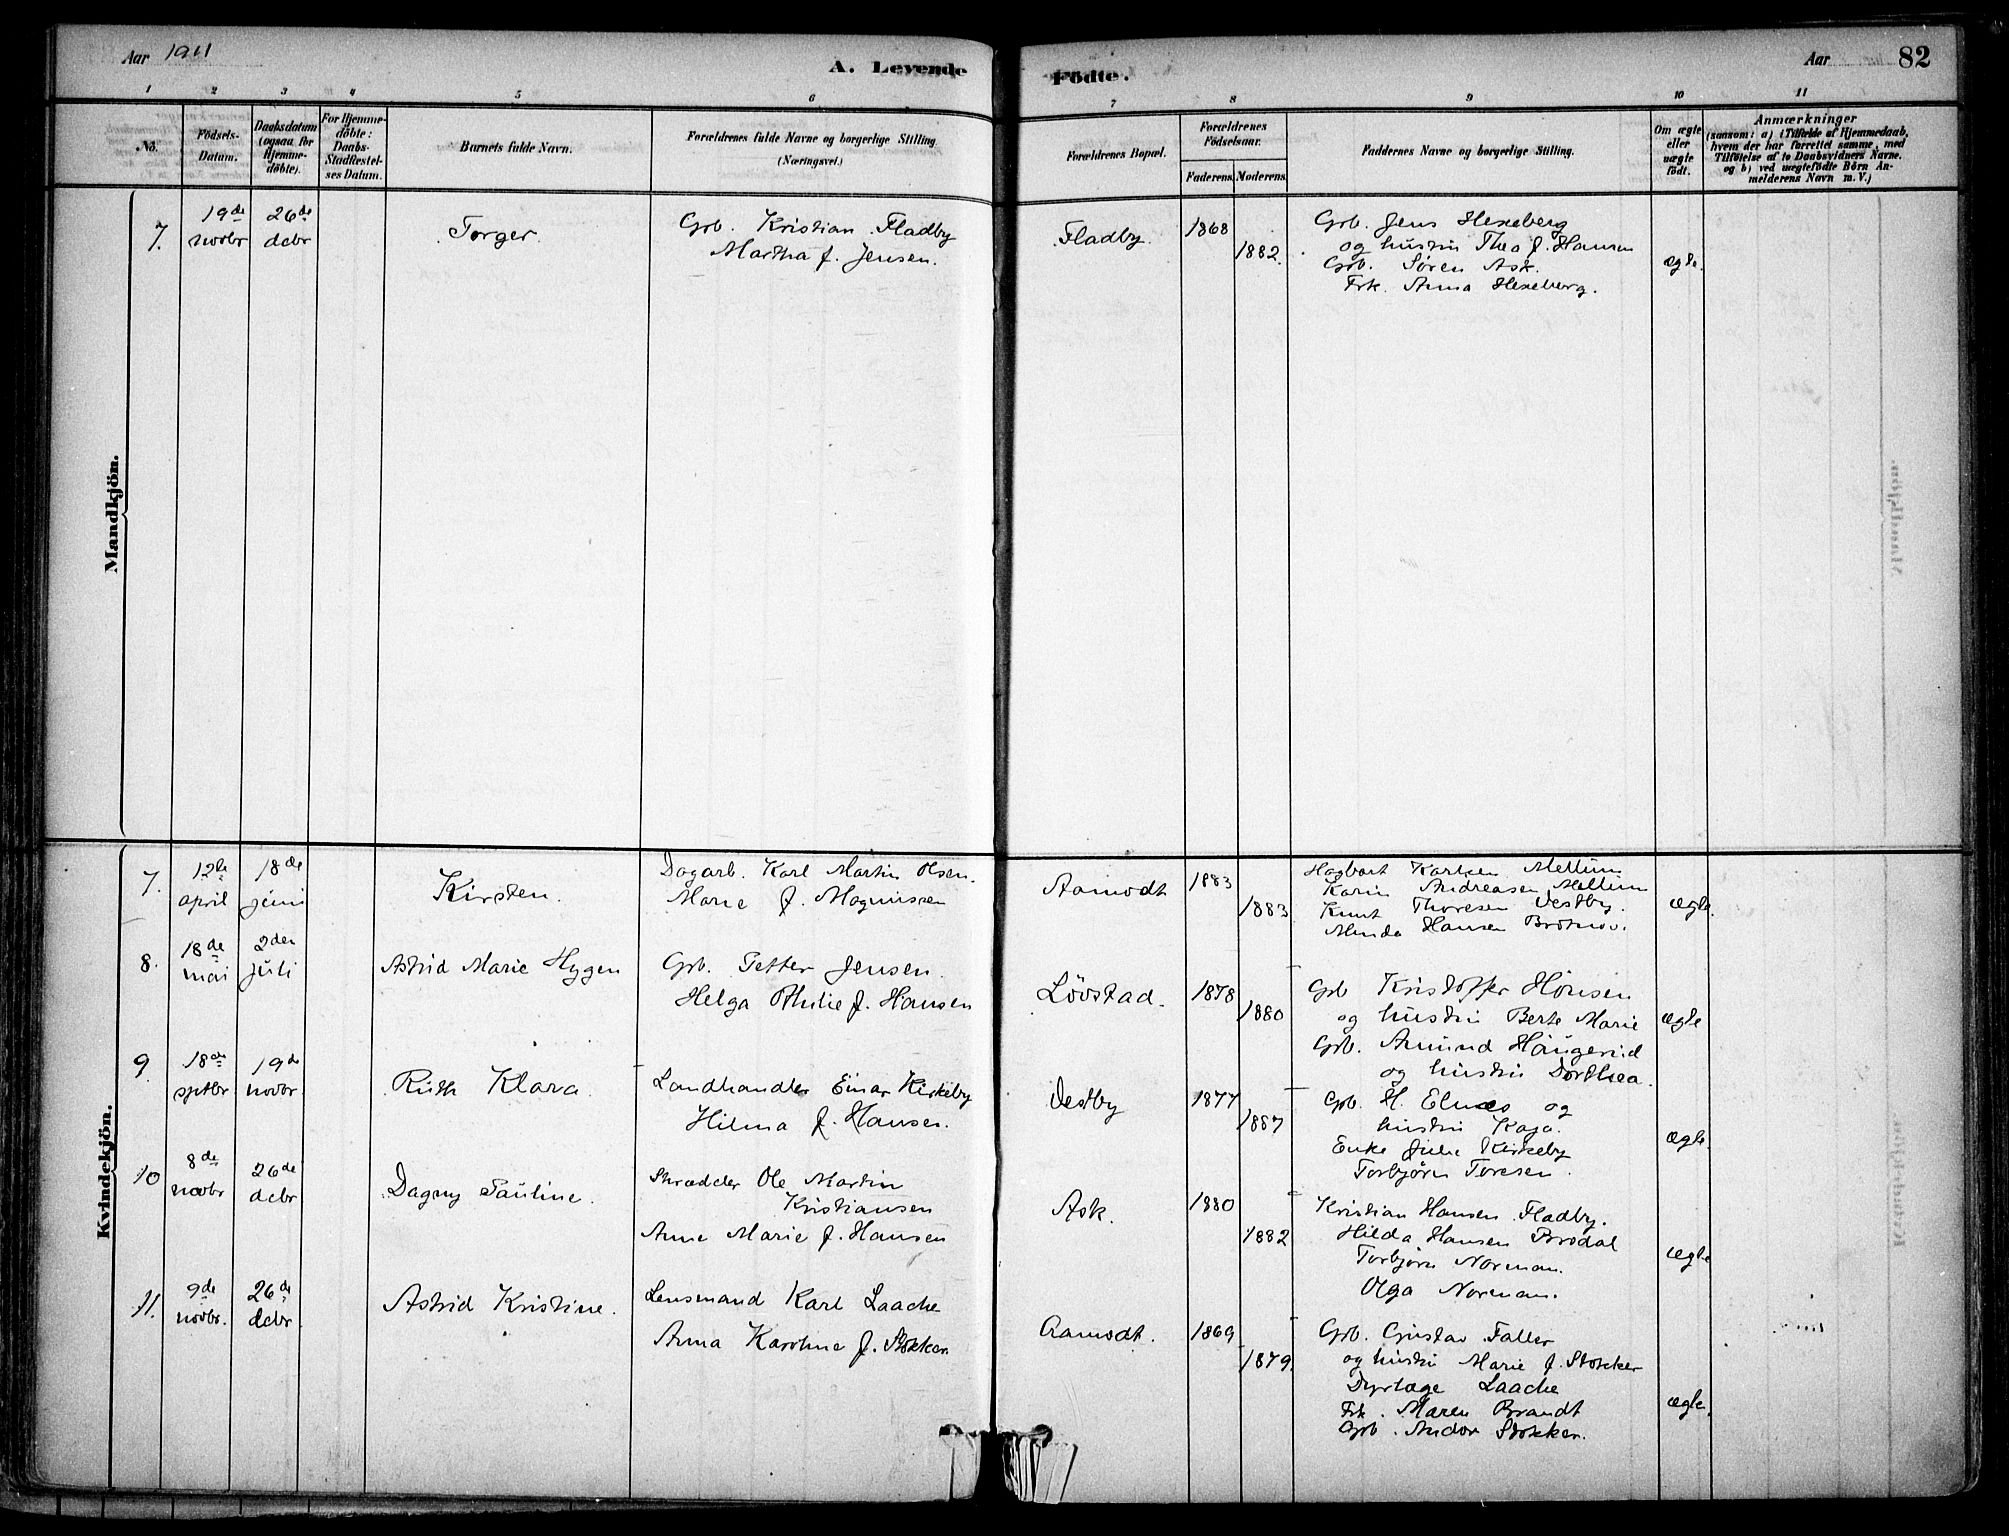 Aar 1911
A. Levende
Födte.
Aar
82
1 2 3 4 5 6 7 8 9 10 11
No.
Födsels-Datum.
Daabsdatum (ogsaa for Hjemme-döbte).
For Hjemme-döbte: Daabs-Stadfæstel-ses Datum.
Barnets fulde Navn.
Forældrenes fulde Navne og borgerlige Stilling. (Næringsvei.)
Forældrenes Bopæl.
Forældrenes Födselsaar.
Faderens. Moderens.
Faddernes Navne og borgerlige Stilling.
Om ægte eller uægte födt.
Anmærkninger
(saasom: a) i Tilfælde af Hjemmedaab,
hvem der har forrettet samme, med
Tilföielse af to Daabsvidners Navne.
og b) ved uægtefödte Börn An-
melderens Navn m. V.)
Mandkjön.
7. 19de novbr 26de decbr Torger. Grb. Kristian Fladby
Martha f. Jensen.
Fladby. 1868 1882.
Grb. Jens Hexeberg
og hustru Thea f. Hansen
Grb. Søren Ask.
Frk. Anna Hexeberg.
ægte.
Kvindekjön.
7. 12te april 18de juni Kirsten. Dagarb. Karl Martin Olsen.
Marie f. Magnussen
Aamodt 1883 1883
Hagbart Karlsen Mellum
Karin Andreasen Mellum
Knut Thoresen Vestby.
Minda Hansen
ægte.
8. 18de mai 2den juli Astrid Marie Hygen Grb. Petter Jensen.
Helga f. Hansen
Lövstad. 1878 1880
Grb Kristoffer Hönsen
og hustru Berte Marie
Grb. Amund Haugerud
og hustru Dorthea.
ægte
9. 18de sptbr 19de novbr Ruth Klara Landhandler Einar Kirkeby
Hilma f. Hansen.
Vestby 1877 1887
Grb. H. Elnæs og
hustru Kaja.
Enke Julie Kirkeby
Torbjørn Toresen.
ægte.
10 8de novbr 26de dcbr Dagny Pauline. Skrædder Ole Martin
Kristiansen
Anne Marie f. Hansen
Ask. 1880 1882
Kristian Hansen Fladby.
Hilda Hansen Brodal
Torbjørn Norman.
Olga Norman.
ægte
11. 9de novbr. 26de dcbr Astrid Kristine. Lensmand Karl Laache
Anna Karoline f. Stokker
Aamodt. 1869 1879.
Grb. Gustav Faller
og hustru Marie f. Stokker
Dyrlæge Laache
Frk. Maren Brandt
Grb. Andor Stokker.
ægte.